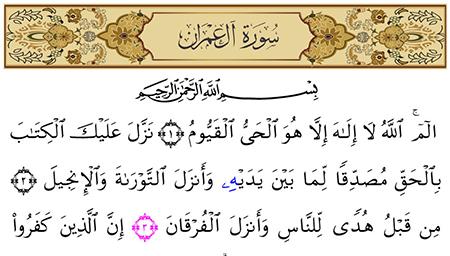 سُورَةُ آلِ عِمْرَانَ
بِسْمِ ٱللَّهِ ٱلرَّحْمَٰنِ ٱلرَّحِيمِ
الٓمٓۚ ٱللَّهُ لَا إِلَٰهَ إِلَّا هُوَ ٱلْحَىُّ ٱلْقَيُّومُ ﴿١﴾ نَزَّلَ عَلَيْكَ ٱلْكِتَٰبَ
بِٱلْحَقِّ مُصَدِّقًا لِّمَا بَيْنَ يَدَيْهِۦ وَأَنزَلَ ٱلتَّوْرَىٰةَ وَٱلْإِنجِيلَ ﴿٢﴾
مِن قَبْلُ هُدًى لِّلنَّاسِ وَأَنزَلَ ٱلْفُرْقَانَ ﴿٣﴾ إِنَّ ٱلَّذِينَ كَفَرُوا۟